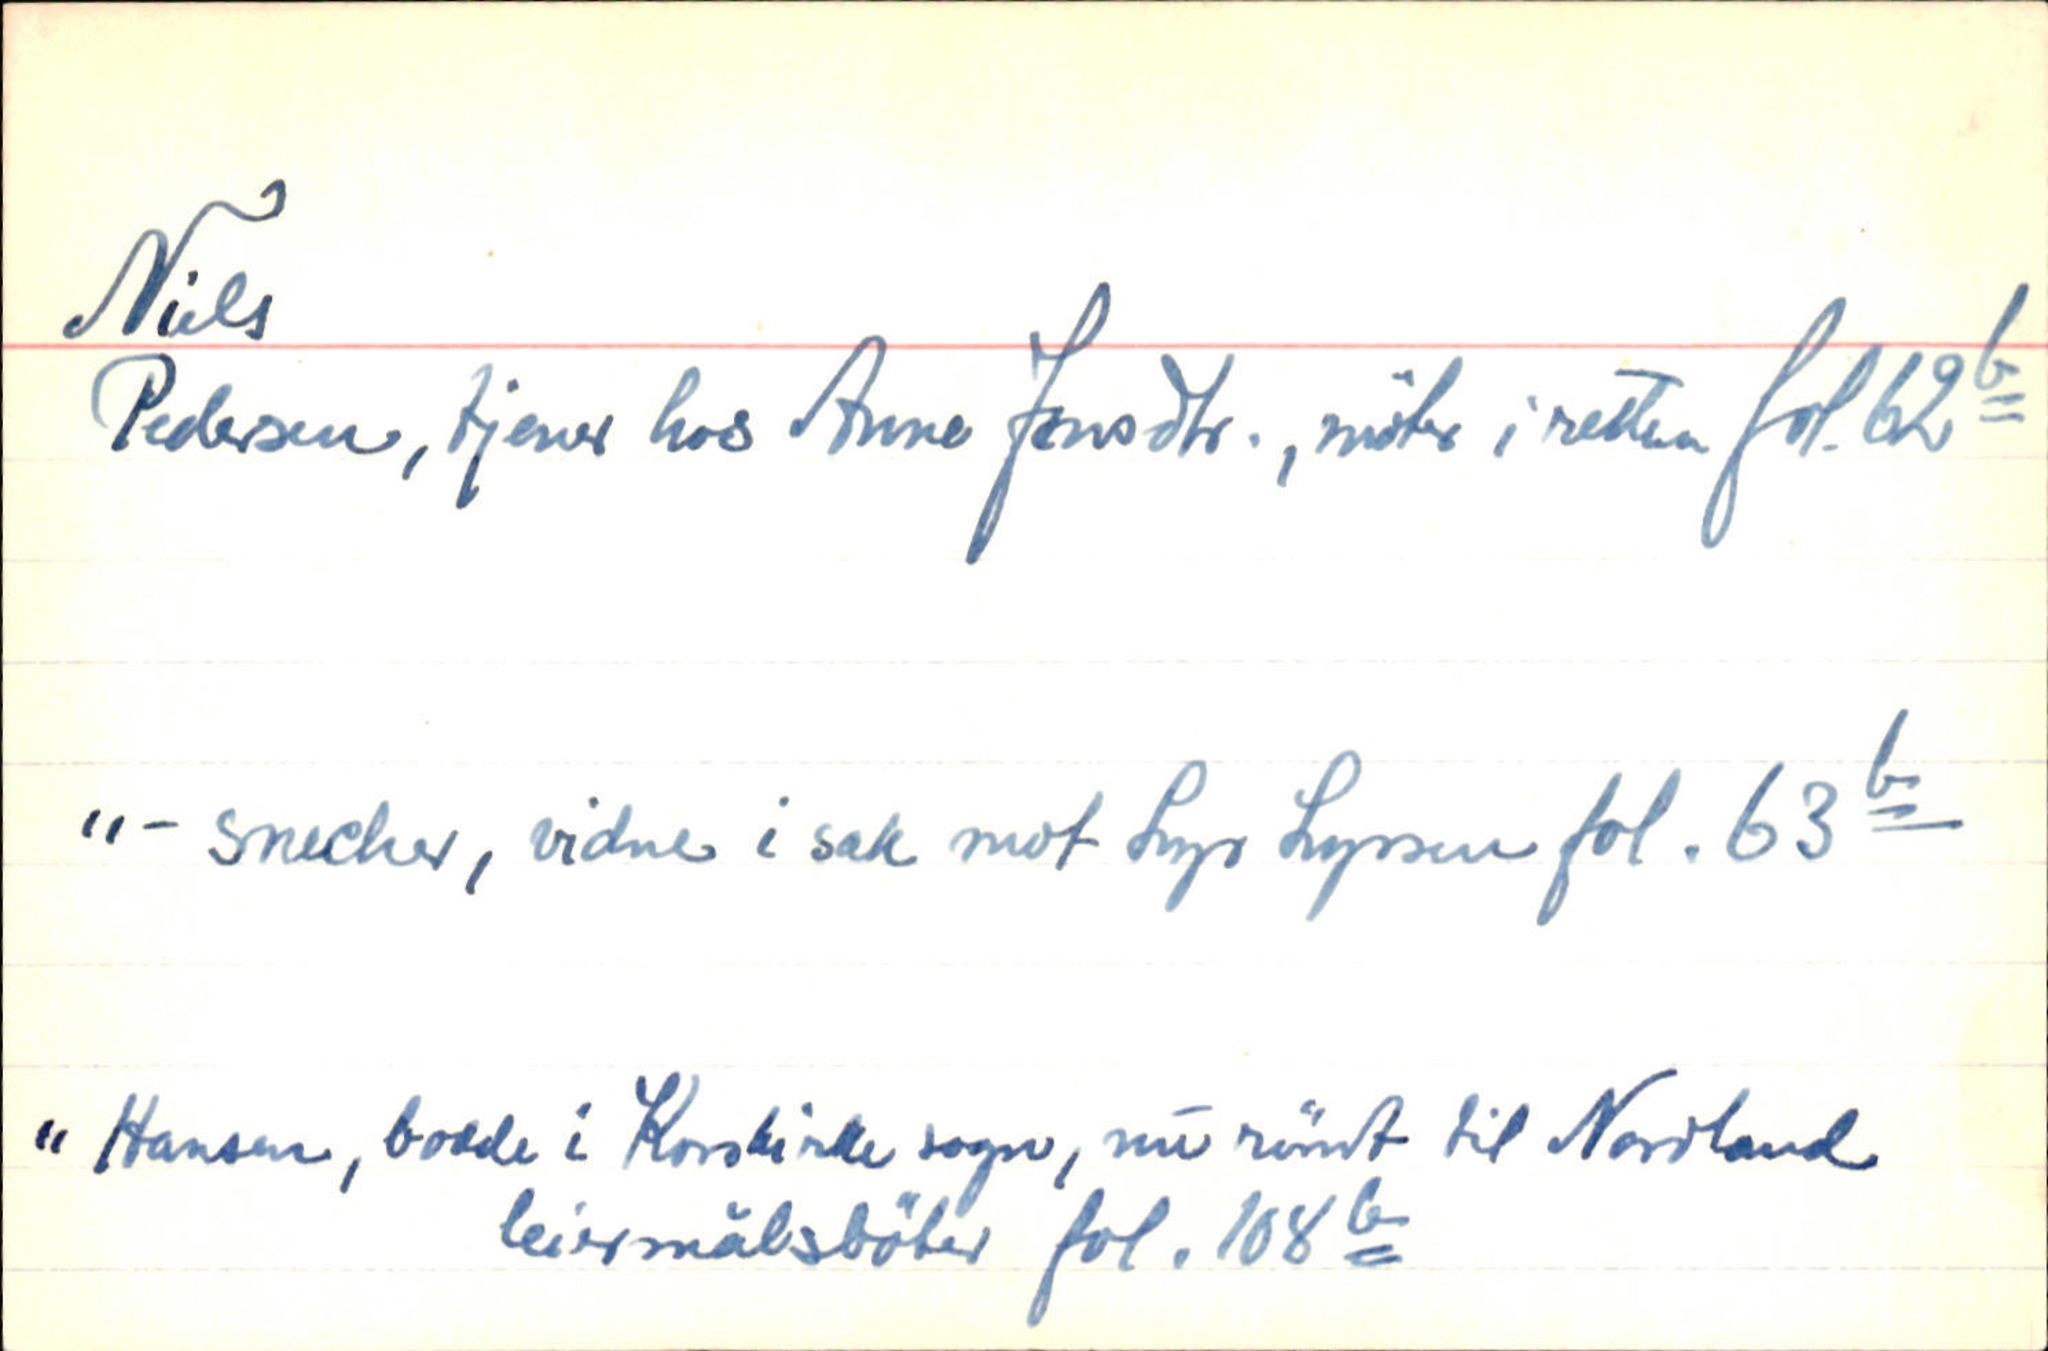 Niels
Pedersen, tjener hos Anne Jensdtr., möter i retten fol. 62 b
"- snecker, vidne i sak mot Lyr Lyrsen fol. 63 b
" Hansen, bodde i Korskirke sogn, nu römt til Nordland
leiermålsböter fol. 108 b